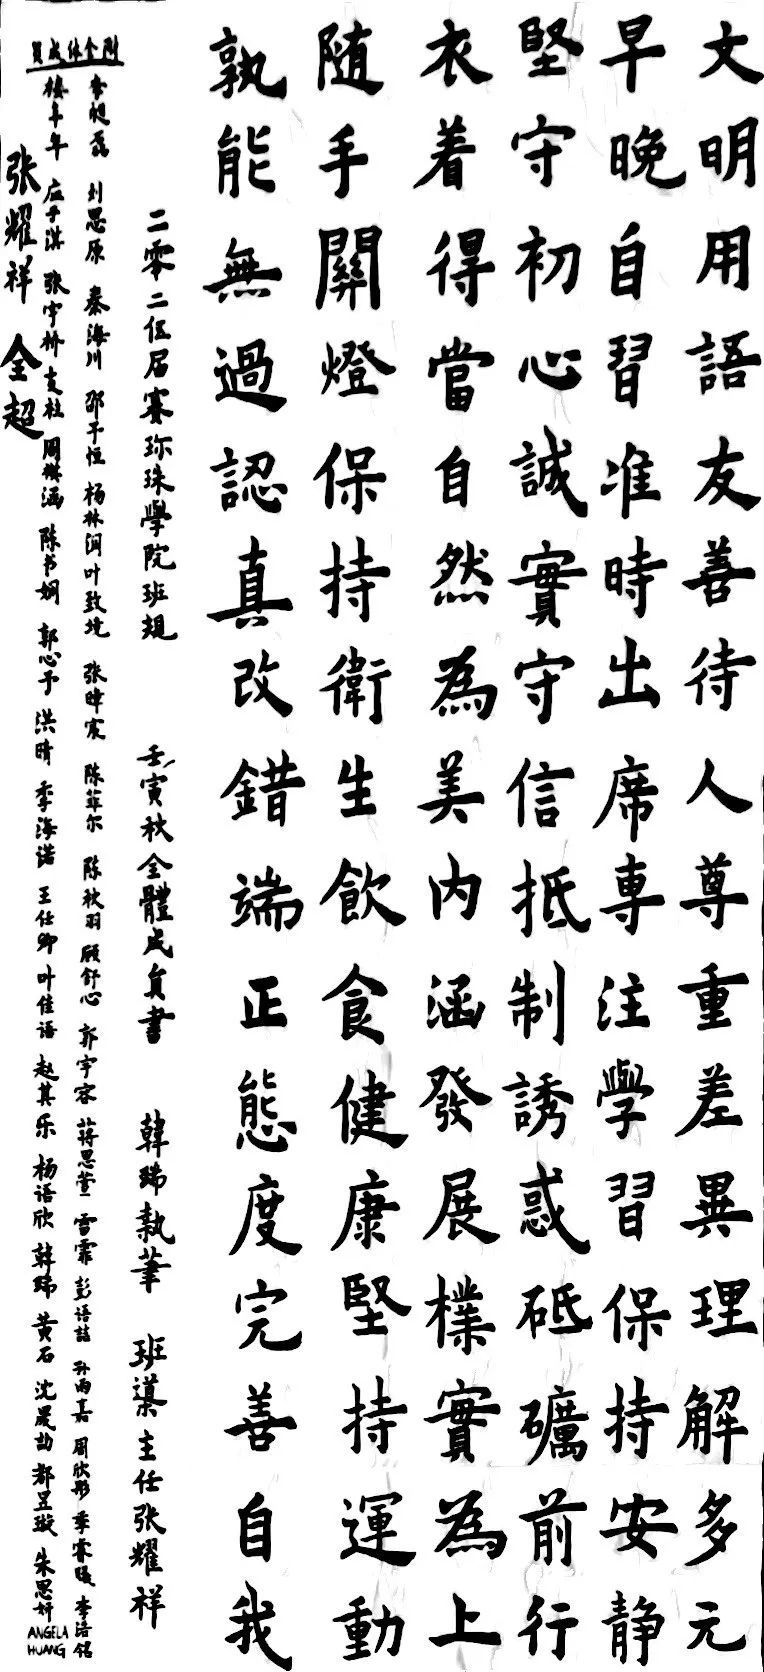 文明用語友善待人尊重差異理解多元
早晚自習准時出席專注學習保持安静
堅守初心誠實守信抵制誘惑砥礪前行
衣着得當自然為美内涵發展樸實為上
随手關燈保持衛生飲食健康堅持運動
孰能無過認真改錯端正態度完善自我
二零二伍届賽珍珠學院班規 壬寅秋全體成員書 韓瑞執筆 班導主任张耀祥
附全体成員
李昶磊 刘思原 秦海川 邵千恒 杨林润 叶致 张暐宸 陈菲尔 陈秋羽 顾舒心 郭宇容 蒋思萱 雪霏 彭语喆 孙雨嘉 周欣彤 季霖 李语铭
应予淇 张宇桥 周祺涵 陈书娴 郭心予 洪晴 季海诺 王仕卿 叶佳语 赵其乐 杨语欣 韩瑞 黄石 沈晟劼 昱璇 朱思妍 ANGELA HUANG
张耀祥 全超